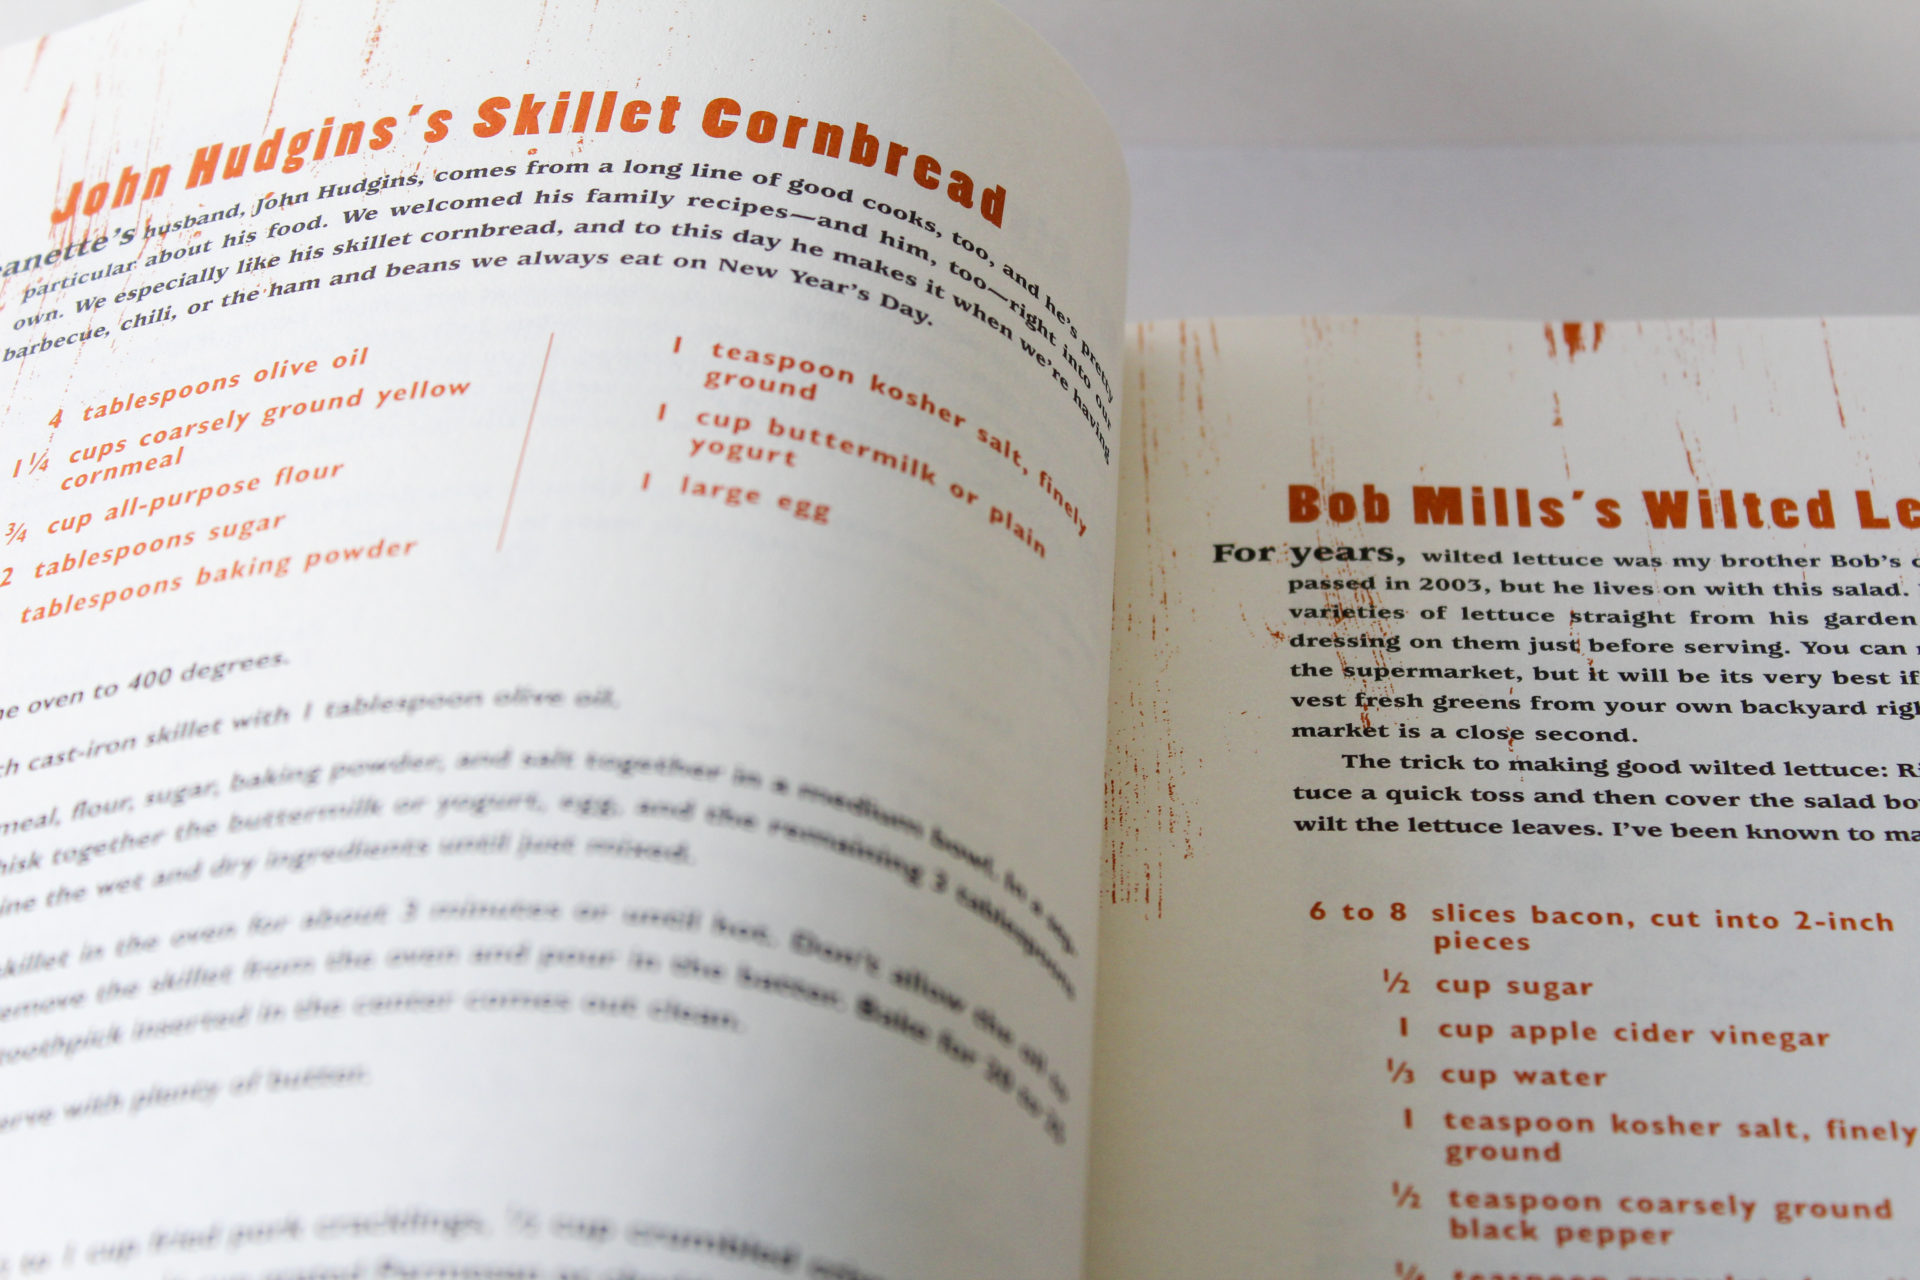 John Hudgins's Skillet Cornbread
anette's husband, John Hudgins, comes from a long line of good cooks, too, and he's pretty
particular about his food. We welcomed his family recipes—and him, too—right into our
own. We especially like his skillet cornbread, and to this day he makes it when we're having
barbecue, chili, or the ham and beans we always eat on New Year's Day.
4 tablespoons olive oil
1 1/4 cups coarsely ground yellow
cornmeal
3/4 cup all-purpose flour
2 tablespoons sugar
tablespoons baking powder
1 teaspoon kosher salt, finely
ground
1 cup buttermilk or plain
yogurt
1 large egg
he oven to 400 degrees.
ch cast-iron skillet with 1 tablespoon olive oil.
meal, flour, sugar, baking powder, and salt together in a medium bowl. In a sep-
hisk together the buttermilk or yogurt, egg, and the remaining 3 tablespoons
ine the wet and dry ingredients until just mixed.
skillet in the oven for about 3 minutes or until hot. Don't allow the oil to
emove the skillet from the oven and pour in the batter. Bake for 20 to
toothpick inserted in the center comes out clean.
erve with plenty of button.
to 1 cup fried pork cracklings, 1/2 cup crumbled
Bob Mills's Wilted Le
For years, wilted lettuce was my brother Bob's
passed in 2003, but he lives on with this salad.
varieties of lettuce straight from his garden
dressing on them just before serving. You can
the supermarket, but it will be its very best if
vest fresh greens from your own backyard righ
market is a close second.
The trick to making good wilted lettuce: Ri
tuce a quick toss and then cover the salad bo
wilt the lettuce leaves. I've been known to ma
6 to 8 slices bacon, cut into 2-inch
pieces
1/2 cup sugar
1 cup apple cider vinegar
1/3 cup water
1 teaspoon kosher salt, finely
ground
1/2 teaspoon coarsely ground
black pepper